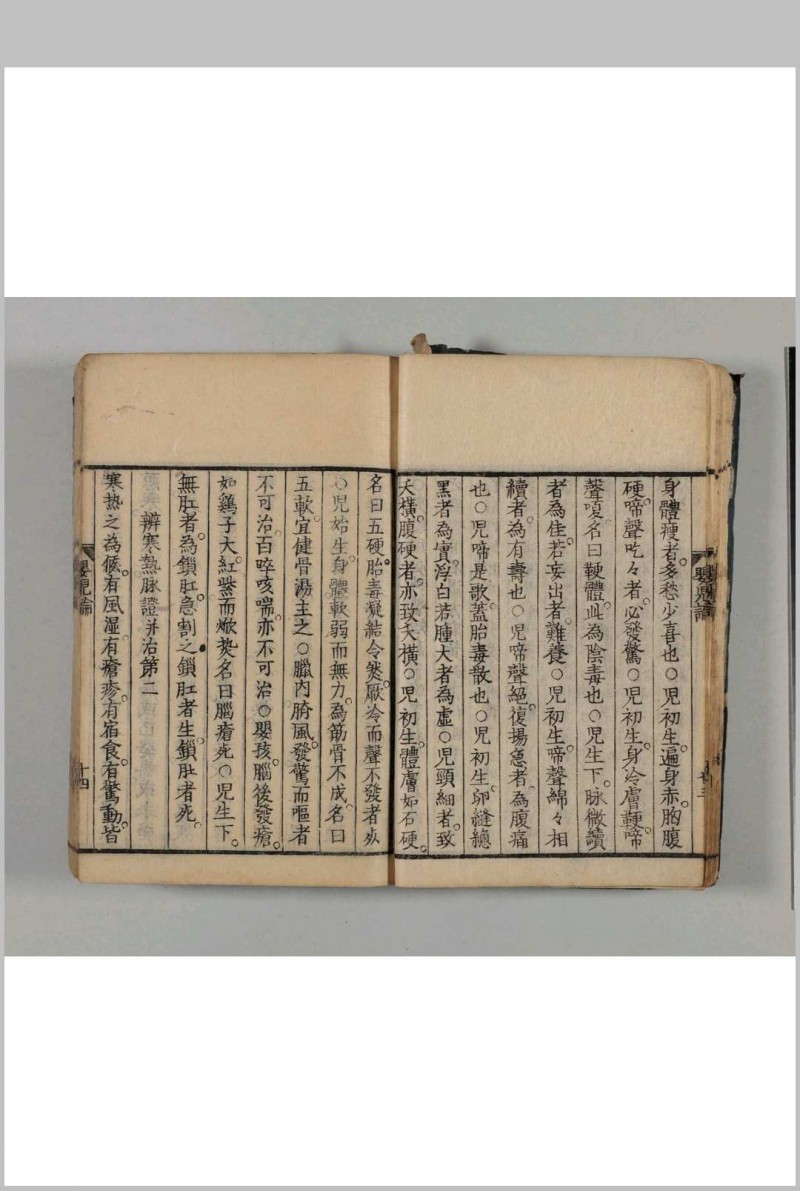 身體瘦者。多愁少喜也○児初生。遍身赤胸腹
硬。啼聲吃々者。必發驚○児初生。身冷膚鞕。啼
聲嗄。名曰鞕體。此為陰毒也○児生下。脉微續
者為佳。若妄出者。難養○児初生。啼聲綿々相
續者。為有壽也○児啼聲絕。復揚急者。為腹痛
也○児啼是歌。蓋胎毒散也○児初生。卵縫總
黑者為實。浮白若腫大者為虛○児頸細者。致
夭橫。腹硬者。亦致夭橫○児初生。體膚如石硬。
名曰五硬。胎毒凝結令然。厥冷而聲不發者死
○児始生。身體軟弱而無力。為筋骨不成。名曰
五軟。宜健骨湯主之○臘內臍風。發驚而嘔者
不可治。百晬咳喘。亦不可治○嬰孩。腦後發瘡。
如鷄子大。紅紫而焮𤍠。名曰腦瘡。死○児生下。
無肛者。為鎖肛。急割之。鎖肛者生。鎖肚者死。
辨寒熱脉證并治第二
寒热之為候。有風湿。有瘡疹。有宿食。有驚動。皆
嬰児論
十三
嬰児論
十四